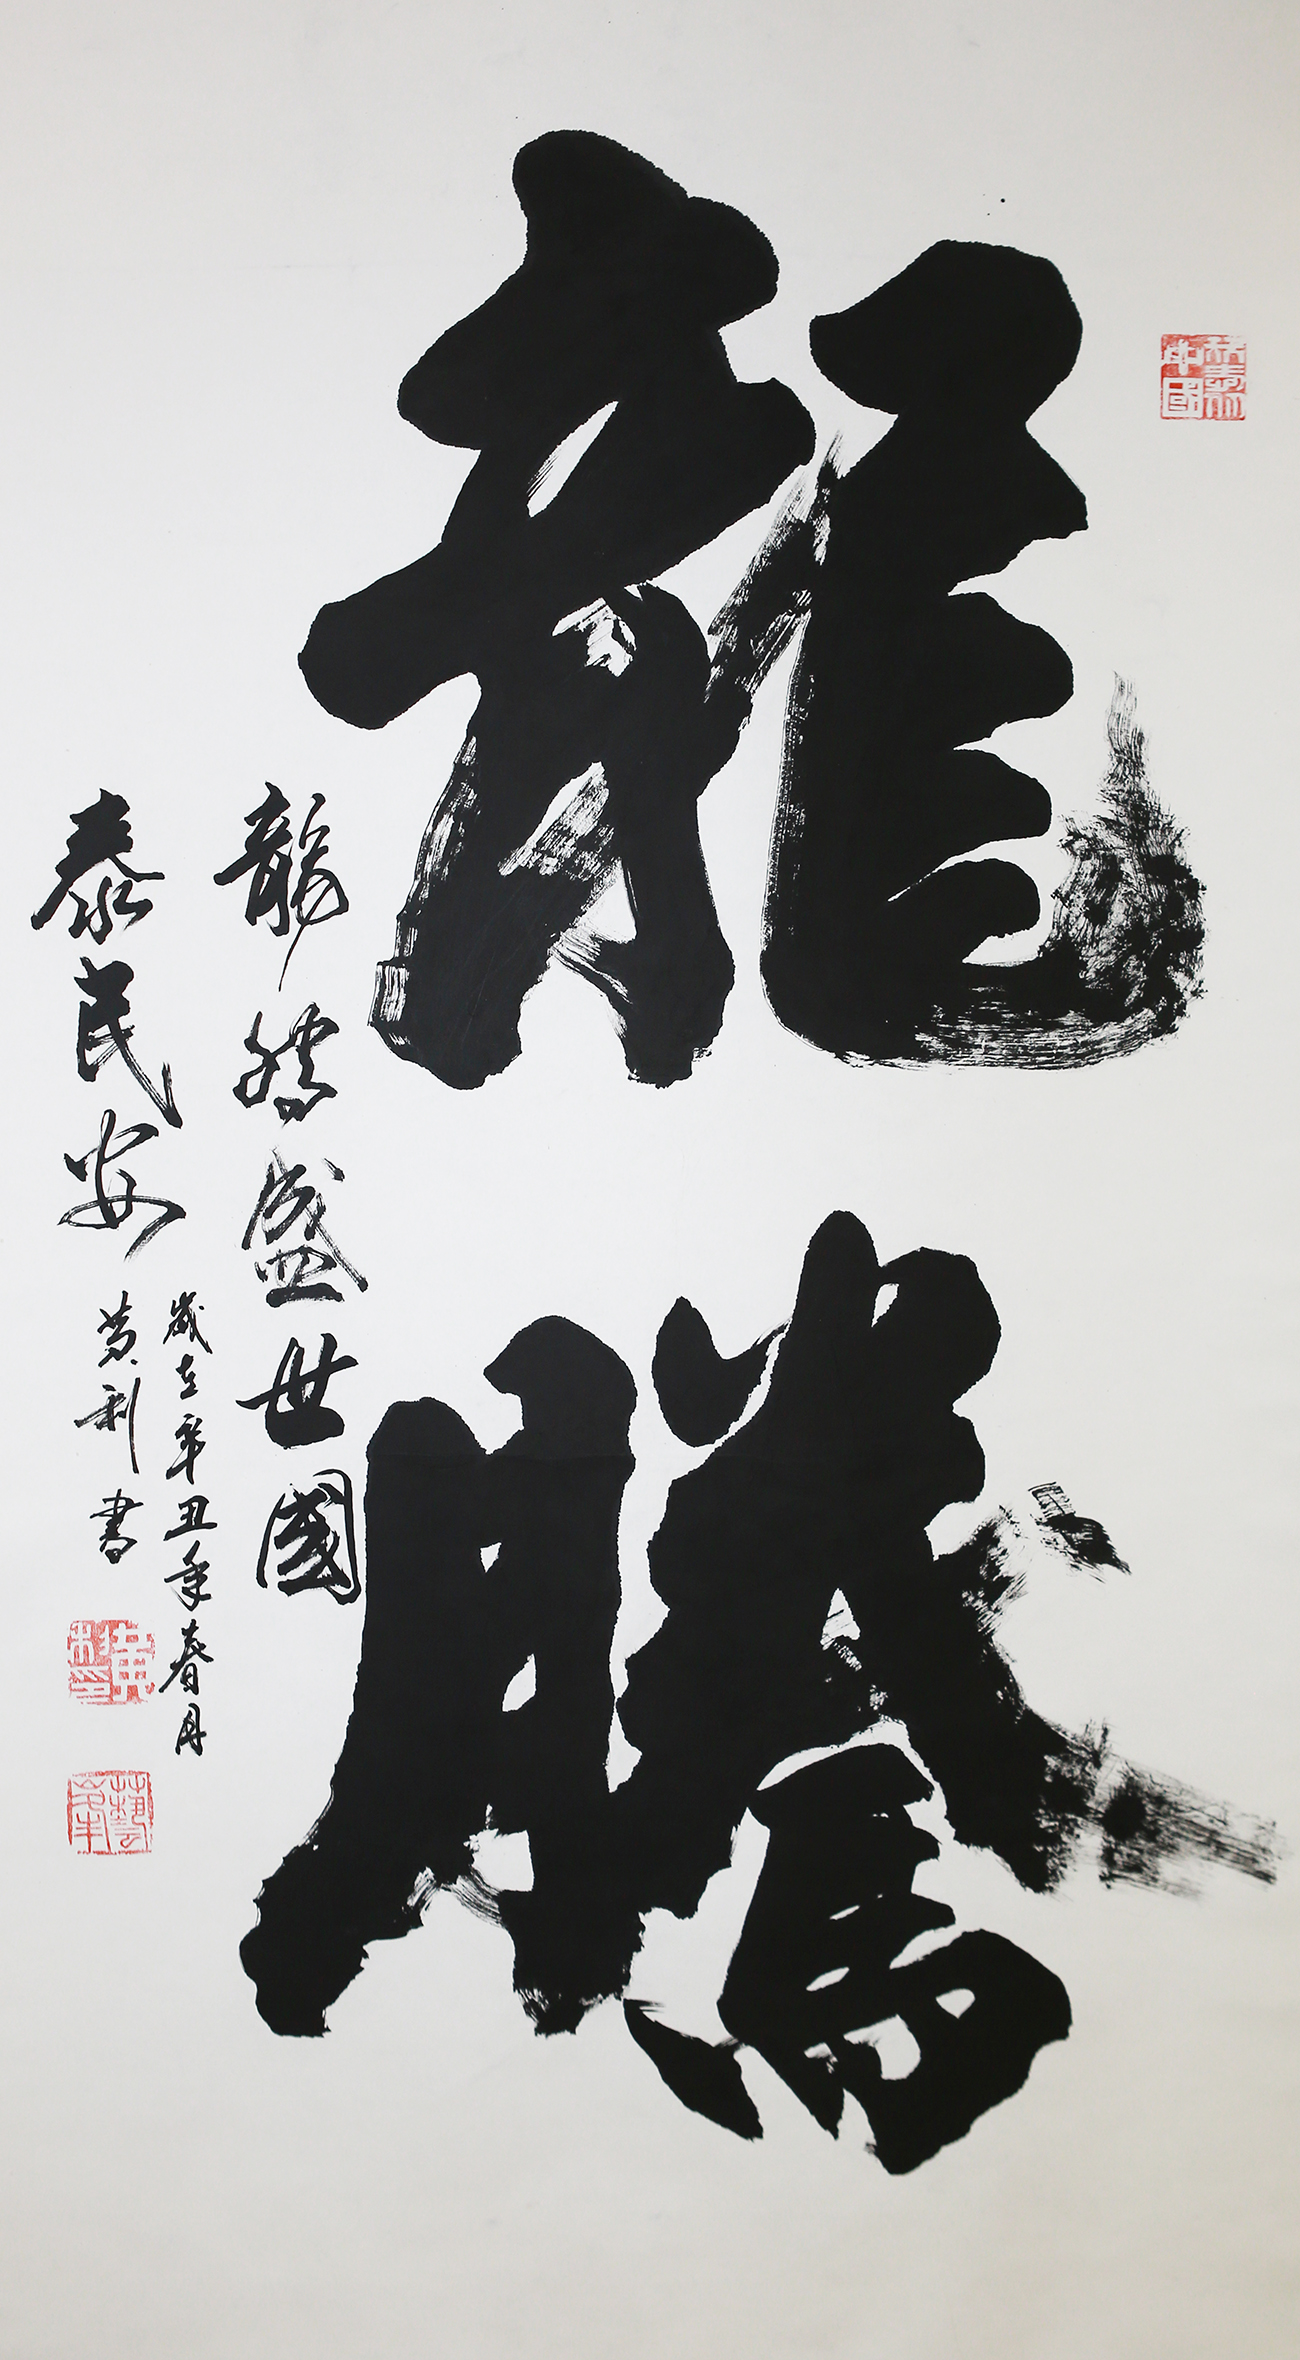 龍騰
龍騰盛世國
泰民安
歲在辛丑年春月
黄利書